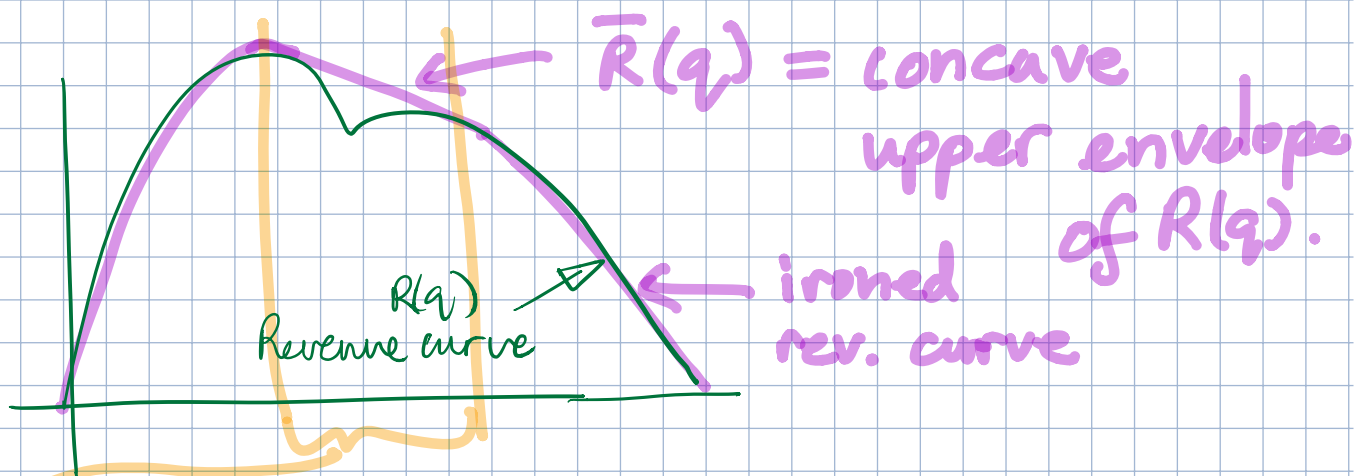 R̅(q) = concave
upper envelope
of R(q).
R(q)
Revenue curve
ironed
rev. curve